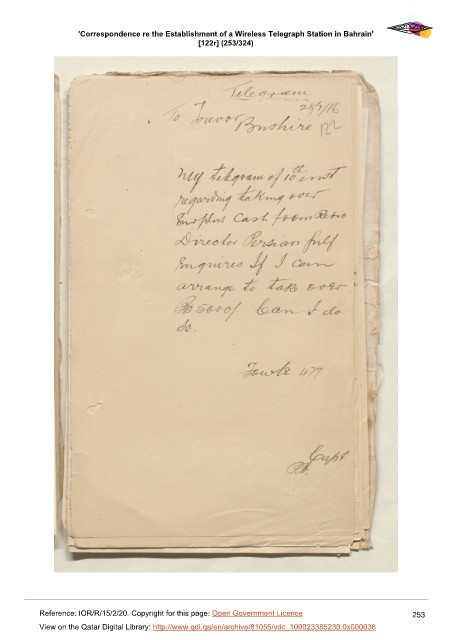 'Correspondence re the Establishment of a Wireless Telegraph Station in Bahrain'
[122r] (253/324)
Telegram
28/7/16
To Trevor
Bushire 122
My telegram of 10th inst
regarding taking over
Surplus Cash from
Director Persian Gulf
Enquires If I can
arrange to take over
Rs 5000/ Can I do
So.
Fowle 477
Capt
PA.
Reference: IOR/R/15/2/20. Copyright for this page: Open Government Licence
View on the Qatar Digital Library: http://www.qdl.qa/en/archive/81055/vdc_100023385230.0x000036
253